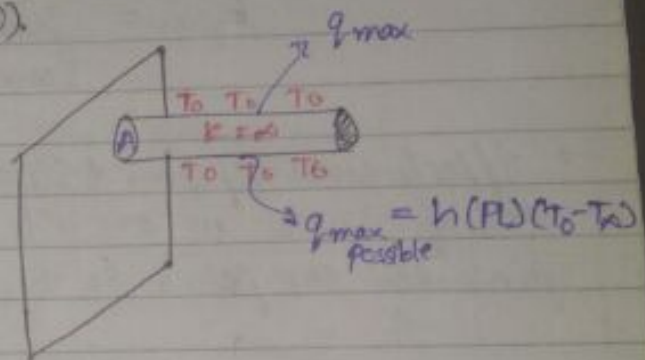 ).
q max
To To To
A K = ∞
To To To
q max possible = h(PL)(To-T∞)